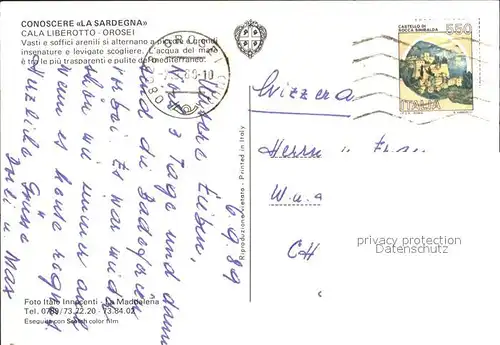 CONOSCERE «LA SARDEGNA»
CALA LIBEROTTO - OROSEI
Vasti e soffici arenili si alternano a piccole e grandi
insenature e levigate scogliere. L'acqua del mare
è tra le più trasparenti e pulite del mediterraneo.
OROSEI
CASTELLO DI
ROCCA SINIBALDA
550
ITALIA
Svizzera
Herrn u
CH
privacy protection
Datenschutz
Riproduzione vietata - Printed in Italy
6.9.89
Liebe Eliben,
Nur 3 Tage und dann
sind die Badeferien
vorbei. Es war wieder
schön wie immer auch
wenn es heute regnet.
Herzliche Grüsse
u Max
Foto Italo Innocenti - La Maddalena
Tel. 0789/73.72.20 - 73.84.02
Eseguite con Scotch color film